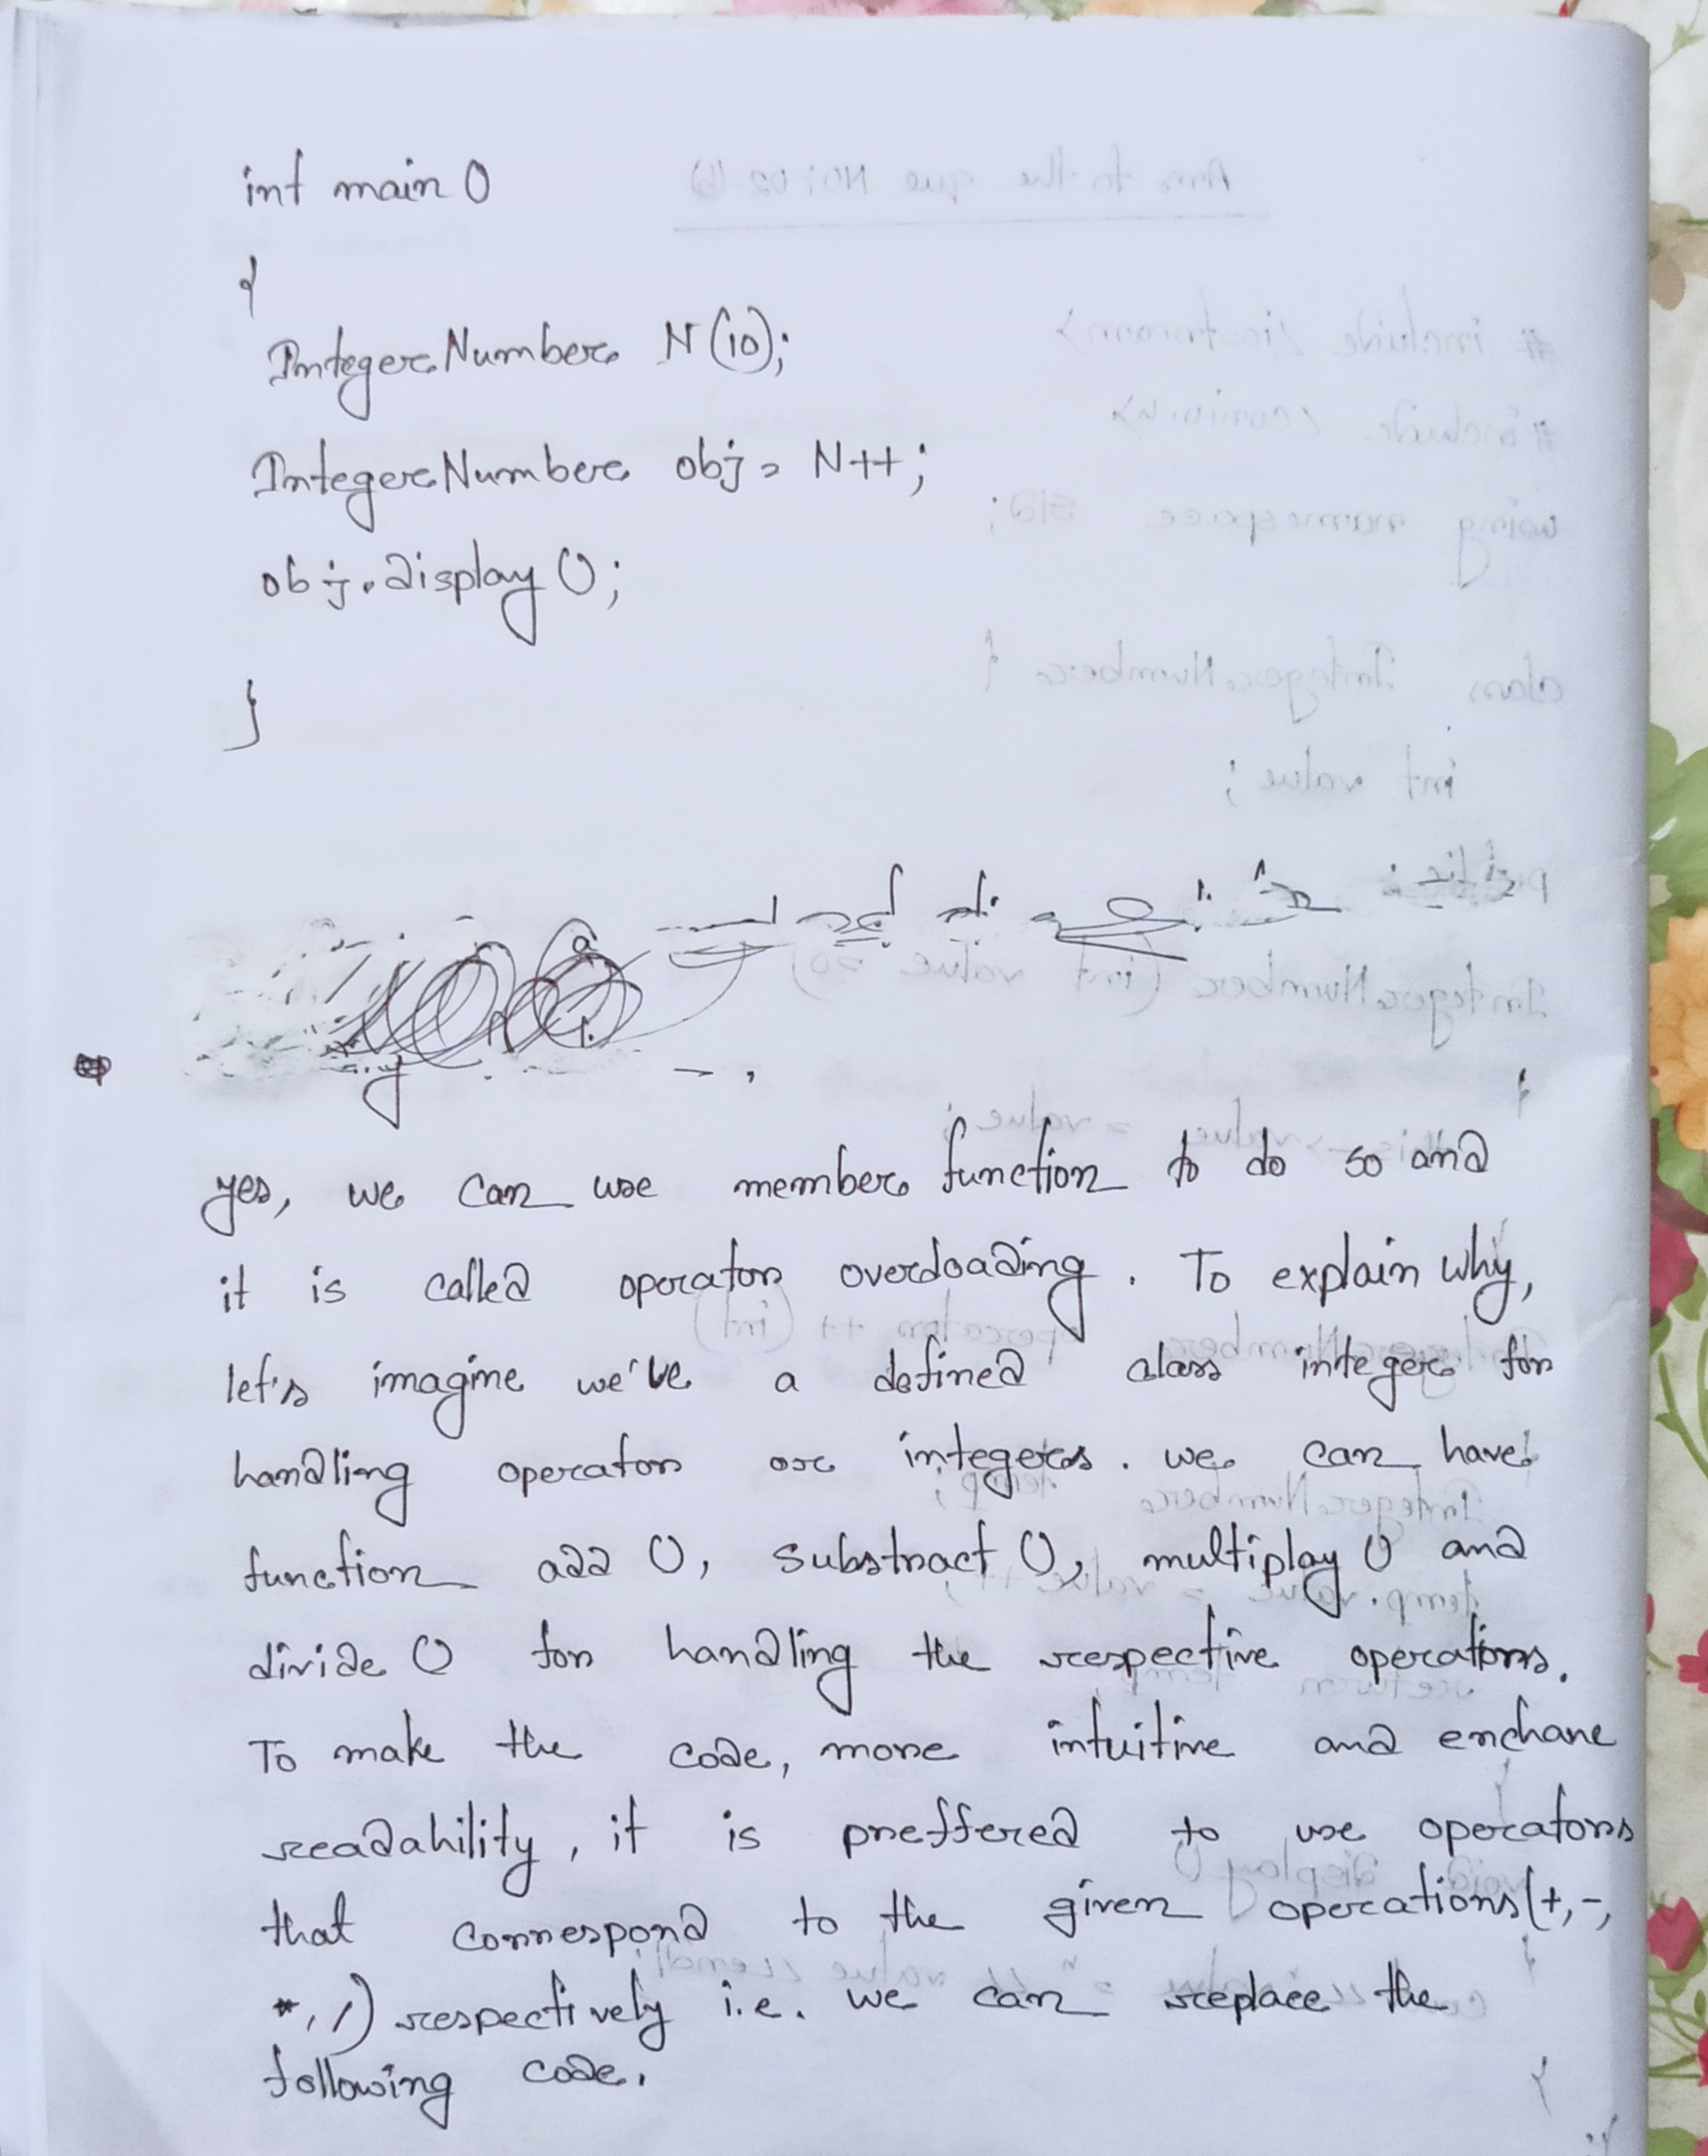 int main()
{
IntegerNumber N(10);
IntegerNumber obj = N++;
obj.display();
}
yes, we can use member function to do so and
it is called operator overloading. To explain why,
let's imagine we've a defined class integer for
handling operator on integers. we can have
function add (), substract (), multiplay () and
divide () for handling the respective operations.
To make the code, more intuitive and enchane
readability, it is preffered to use operators
that correspond to the given operations(+,-,
*,/) respectively i.e. we can replace the
following code.